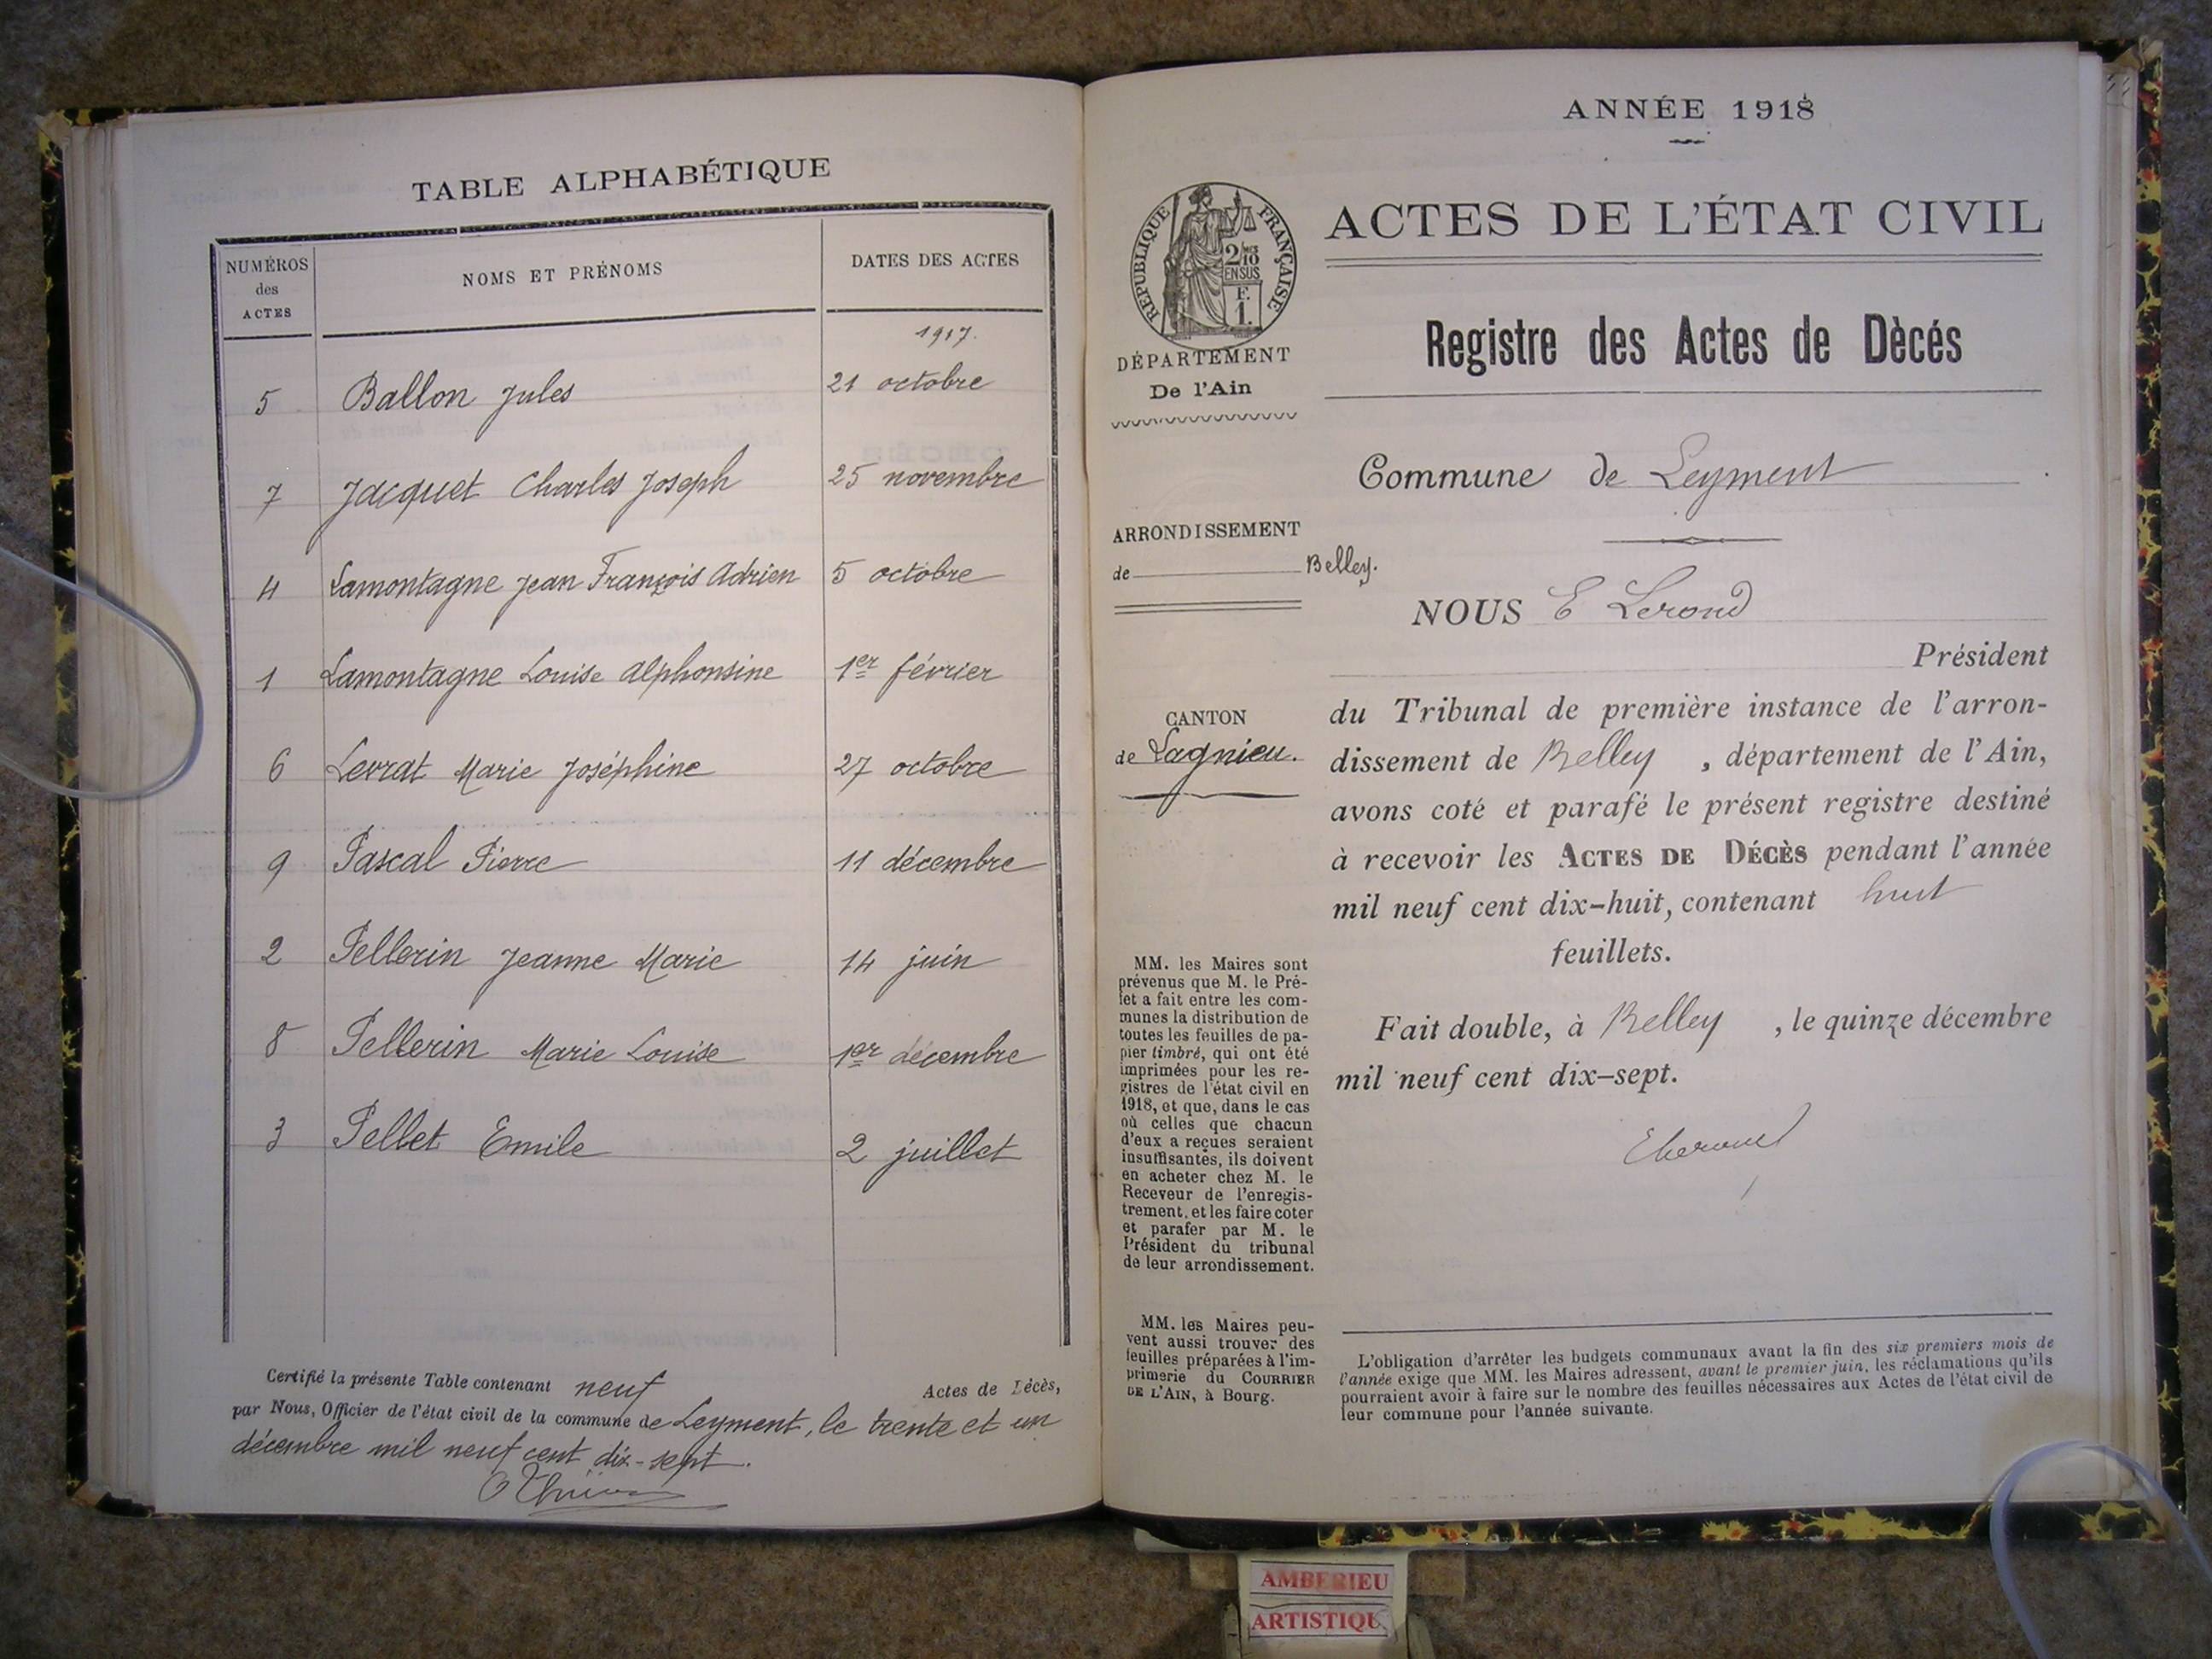 TABLE ALPHABÉTIQUE
NUMÉROS des ACTES NOMS ET PRÉNOMS DATES DES ACTES
1917.
5 Ballon Jules 21 octobre
7 Jacquet Charles Joseph 25 novembre
4 Lamontagne Jean François Adrien 5 octobre
1 Lamontagne Louise Alphonsine 1er février
6 Levrat Marie Joséphine 27 octobre
9 Pascal Pierre 11 décembre
2 Pellerin Jeanne Marie 14 juin
8 Pellerin Marie Louise 1er décembre
3 Pellet Emile 2 juillet
Certifié la présente Table contenant neuf Actes de Décès,
par Nous, Officier de l'état civil de la commune de Leyment, le trente et un
décembre mil neuf cent dix-sept.
ANNÉE 1918
RÉPUBLIQUE FRANÇAISE
2/10
EN SUS
F.
1.
DÉPARTEMENT
De l'Ain
ARRONDISSEMENT
de Belley.
CANTON
de Lagnieu.
MM. les Maires sont
prévenus que M. le Pré-
fet a fait entre les com-
munes la distribution de
toutes les feuilles de pa-
pier timbré, qui ont été
imprimées pour les re-
gistres de l'état civil en
1918, et que, dans le cas
où celles que chacun
d'eux a reçues seraient
insuffisantes, ils doivent
en acheter chez M. le
Receveur de l'enregis-
trement, et les faire coter
et parafer par M. le
Président du tribunal
de leur arrondissement.
MM. les Maires peu-
vent aussi trouver des
feuilles préparées à l'im-
primerie du COURRIER
DE L'AIN, à Bourg.
ACTES DE L'ÉTAT CIVIL
Registre des Actes de Dècés
Commune de Leyment
NOUS E Lerond
Président
du Tribunal de première instance de l'arron-
dissement de Belley, département de l'Ain,
avons coté et parafé le présent registre destiné
à recevoir les ACTES DE DÉCÈS pendant l'année
mil neuf cent dix-huit, contenant huit
feuillets.
Fait double, à Belley, le quinze décembre
mil neuf cent dix-sept.
L'obligation d'arrêter les budgets communaux avant la fin des six premiers mois de
l'année exige que MM. les Maires adressent, avant le premier juin, les réclamations qu'ils
pourraient avoir à faire sur le nombre des feuilles nécessaires aux Actes de l'état civil de
leur commune pour l'année suivante.
AMBERIEU
ARTISTIQU